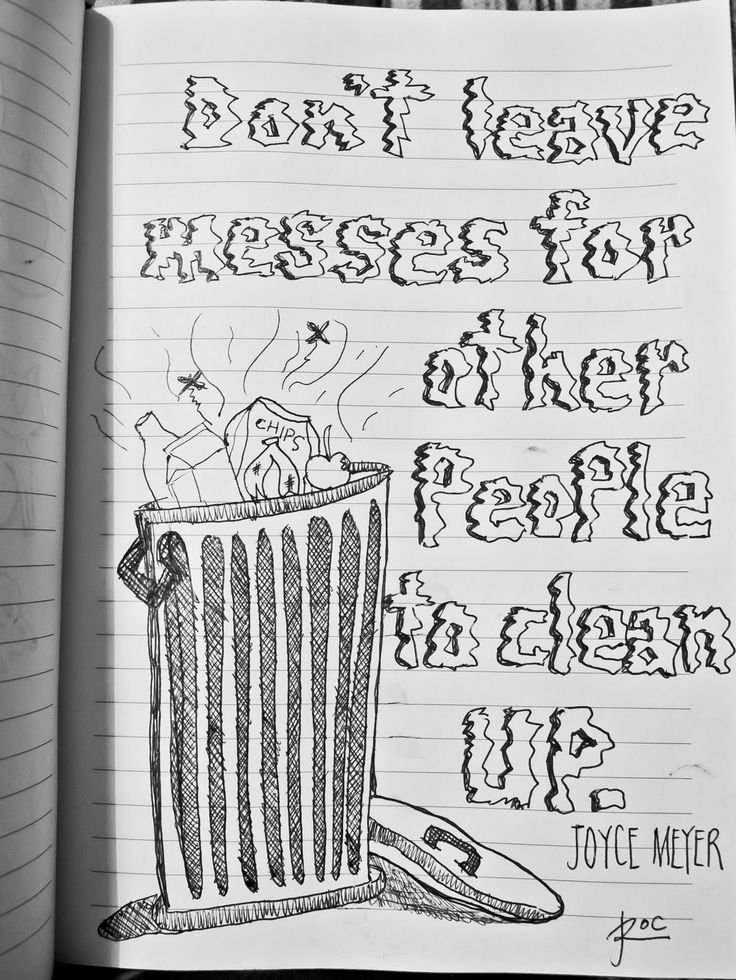 Don't leave
messes for
other
PeoPle
to clean
UP.
CHIPS
JOYCE MEYER
ROC